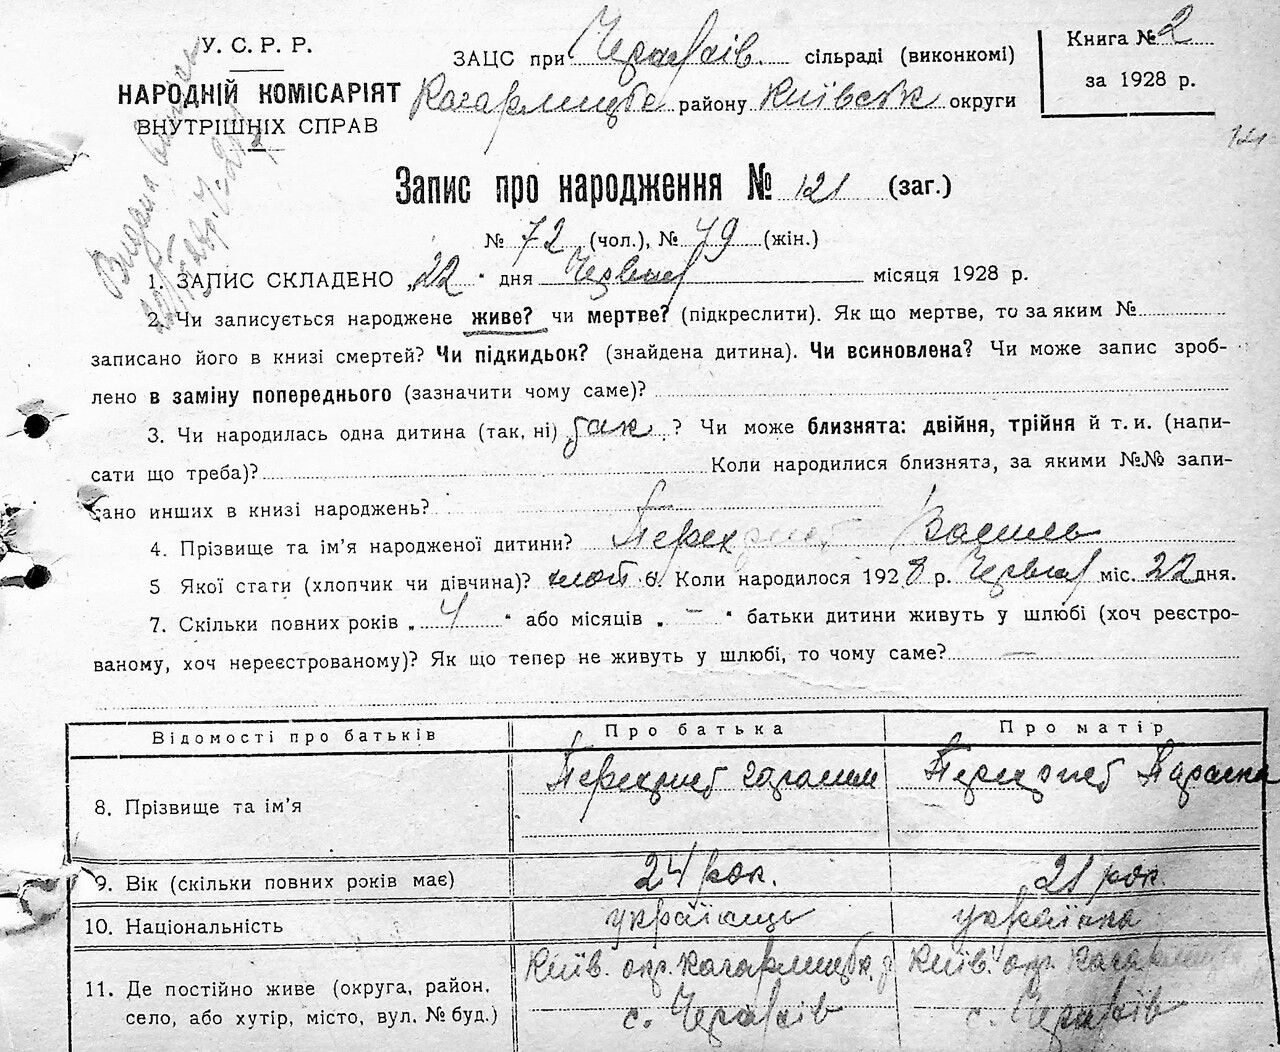 У. С. Р. Р.
НАРОДНІЙ КОМІСАРІЯТ
ВНУТРІШНІХ СПРАВ
ЗАЦС при сільраді (виконкомі)
Кагарлицьк району Київськ округи
Книга № 2
за 1928 р.
121
Видан
Запис про народження № 121 (заг.)
№ 72 (чол.), № 49 (жін.)
1. ЗАПИС СКЛАДЕНО „22“ дня Червня місяця 1928 р.
2. Чи записується народжене живе? чи мертве? (підкреслити). Як що мертве, то за яким №
записано його в книзі смертей? Чи підкидьок? (знайдена дитина). Чи всиновлена? Чи може запис зроб-
лено в заміну попереднього (зазначити чому саме)?
3. Чи народилась одна дитина (так, ні) так ? Чи може близнята: двійня, трійня й т. и. (напи-
сати що треба)? Коли народилися близнята, за якими №№ запи-
сано инших в книзі народжень?
4. Прізвище та ім’я народженої дитини? Перехрест Василь
5 Якої стати (хлопчик чи дівчина)? хлоп 6. Коли народилося 1928 р. Червня міс. 22 дня.
7. Скільки повних років „ 4 “ або місяців „ – “ батьки дитини живуть у шлюбі (хоч реєстро-
ваному, хоч нереєстрованому)? Як що тепер не живуть у шлюбі, то чому саме? —
Відомості про батьків Про батька Про матір
8. Прізвище та ім’я Перехрест Герасим Перехрест Параска
9. Вік (скільки повних років має) 24 рок. 21 рок.
10. Національність українць українка
11. Де постійно живе (округа, район, Київ. окр. Кагарлицьк. р Київ. окр. Кагарлицьк
село, або хутір, місто, вул. № буд.) с. с.